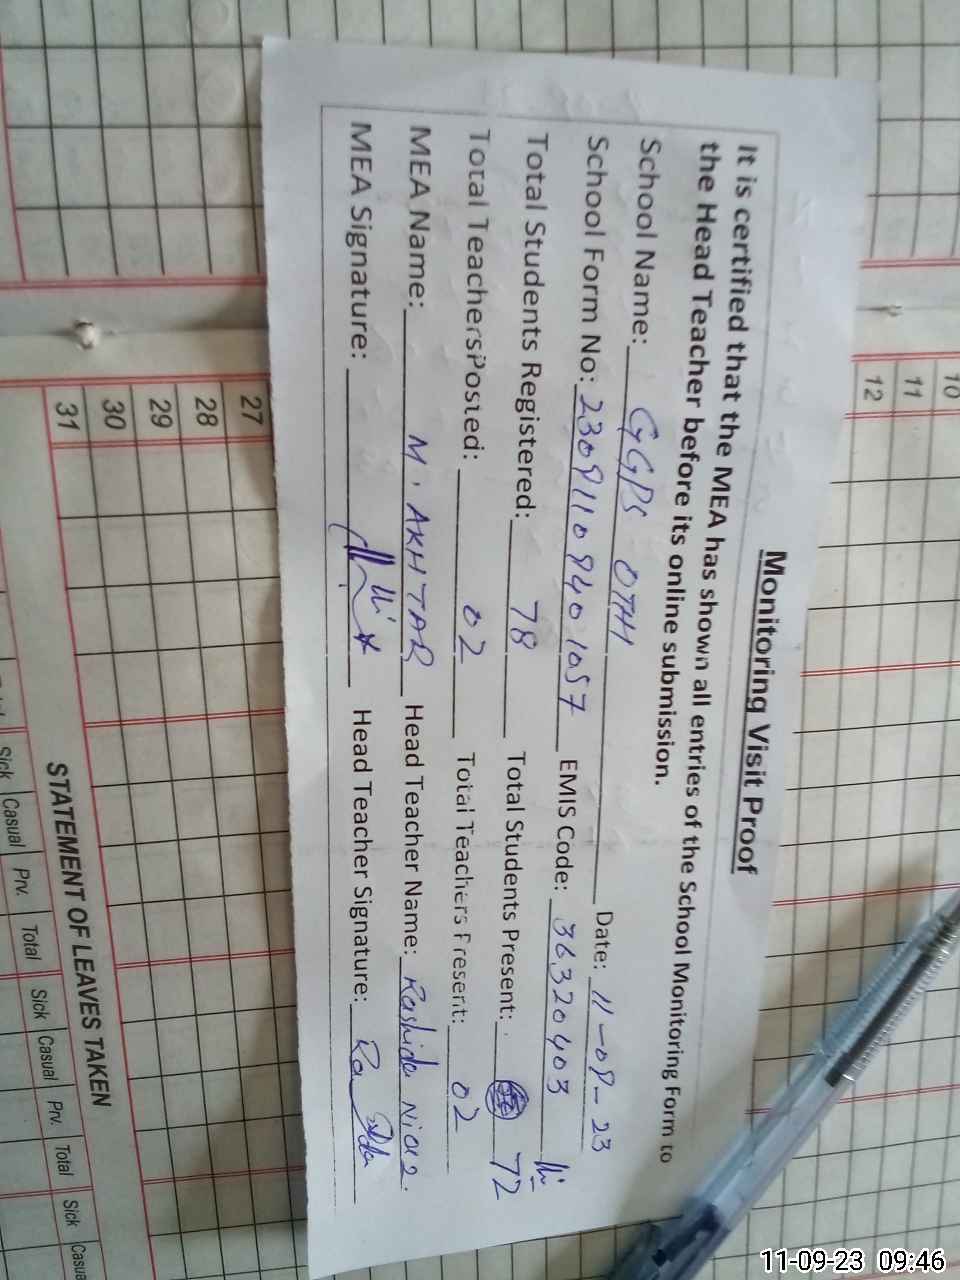 Monitoring Visit Proof
It is certified that the MEA has shown all entries of the School Monitoring Form to
the Head Teacher before its online submission.
School Name: GGPS OTHI Date: 11-09-23
School Form No: 2309110940 1057 EMIS Code: 36320403
Total Students Registered: 78 Total Students Present: 72
Total Teachers Posted: 02 Total Teachers Present: 02
MEA Name: M. AKHTAR Head Teacher Name: Rashida Niaz.
MEA Signature: Head Teacher Signature:
10
11
12
27
28
29
30
31
STATEMENT OF LEAVES TAKEN
Sick Casual Prv. Total Sick Casual Prv. Total Sick Casua
11-09-23 09:46